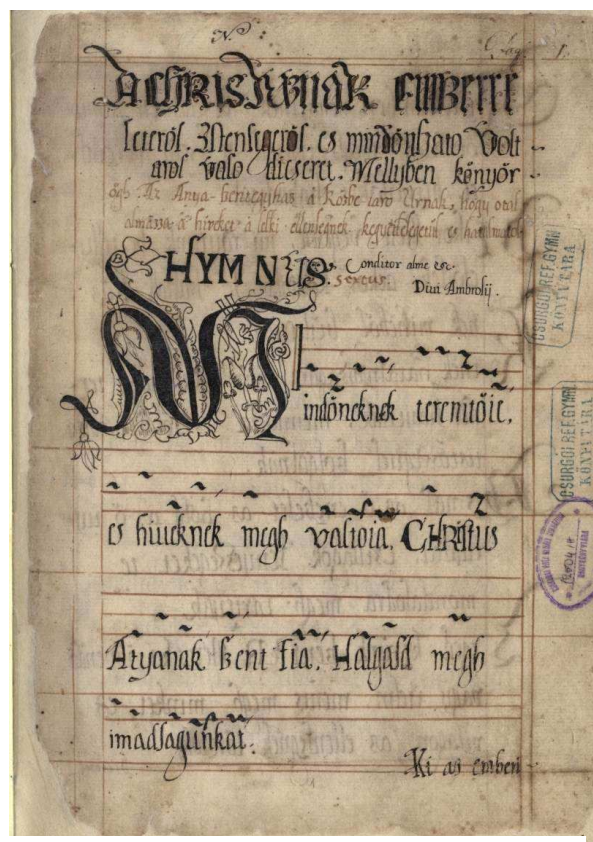 A CHRISTUSNAK EMBERRE
leteröl. Istensegeröl. es mindönhato Volt
arol valo dicseret. Mellyben könyör
ögh Az Anya szentegyhaz à Közbe iaro Urnak, hogy
à lelki ellensegnek
HYMNUS. Conditor alme etc.
sextus. Diui Ambrosij.
Mindöneknek teremtöie,
es hiueknek megh valtoia, CHRIStus
Atyanak szent fia, Halgasd megh
imadsagunkat.
Ki az emberi
CSURGOI REF. GYMN.
KÖNYVTÁRA
CSURGOI REF. GYMN.
KÖNYVTÁRA